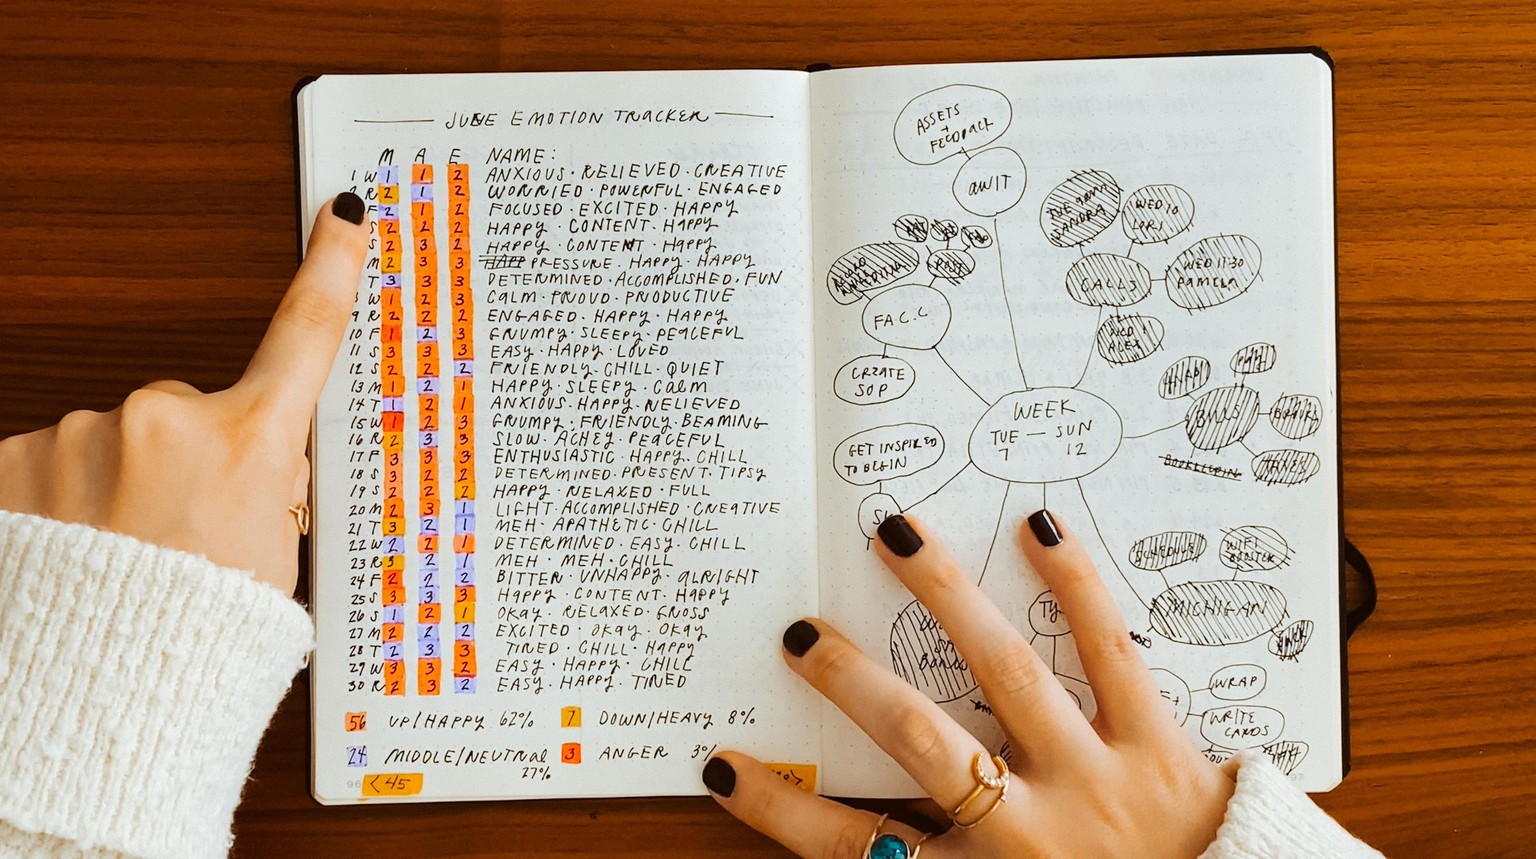 JUNE EMOTION TRACKER
M A E NAME:
1 W 1 1 2 ANXIOUS · RELIEVED · CREATIVE
R 2 1 2 WORRIED · POWERFUL · ENGAGED
F 2 1 2 FOCUSED · EXCITED · HAPPY
S 2 2 2 HAPPY · CONTENT · HAPPY
S 2 3 2 HAPPY · CONTENT · HAPPY
M 2 3 3 PRESSURE · HAPPY · HAPPY
T 3 3 3 DETERMINED · ACCOMPLISHED · FUN
W 1 2 3 CALM · PROUD · PRODUCTIVE
9 R 2 2 2 ENGAGED · HAPPY · HAPPY
10 F 1 2 3 GRUMPY · SLEEPY · PEACEFUL
11 S 3 3 3 EASY · HAPPY · LOVED
12 S 2 2 2 FRIENDLY · CHILL · QUIET
13 M 1 2 1 HAPPY · SLEEPY · CALM
14 T 1 2 1 ANXIOUS · HAPPY · RELIEVED
15 W 1 2 3 GRUMPY · FRIENDLY · BEAMING
16 R 2 3 3 SLOW · ACHEY · PEACEFUL
17 F 3 3 3 ENTHUSIASTIC · HAPPY · CHILL
18 S 3 2 2 DETERMINED · PRESENT · TIPSY
19 S 2 2 2 HAPPY · RELAXED · FULL
20 M 2 3 1 LIGHT · ACCOMPLISHED · CREATIVE
21 T 3 2 1 MEH · APATHETIC · CHILL
22 W 2 2 1 DETERMINED · EASY · CHILL
23 R 3 2 1 MEH · MEH · CHILL
24 F 2 2 2 BITTER · UNHAPPY · ALRIGHT
25 S 3 3 3 HAPPY · CONTENT · HAPPY
26 S 1 2 1 OKAY · RELAXED · GROSS
27 M 2 2 2 EXCITED · OKAY · OKAY
28 T 2 3 3 TIRED · CHILL · HAPPY
29 W 3 3 2 EASY · HAPPY · CHILL
30 R 2 3 2 EASY · HAPPY · TIRED
56 UP/HAPPY 62% 7 DOWN/HEAVY 8%
24 MIDDLE/NEUTRAL 27% 3 ANGER 3%
96 <45
ASSETS + FEEDBACK
AWIT
TUE 9AM SANDRA
WED 10 LORI
CALLS
WED 11:30 PAMELA
WED ALEX
POST
F.A.C.C
CREATE SOP
WEEK
TUE — SUN
7 12
BILLS
GET INSPIRED TO BEGIN
SCHEDULE
WIFI
MICHIGAN
WRAP
WRITE CARDS
97